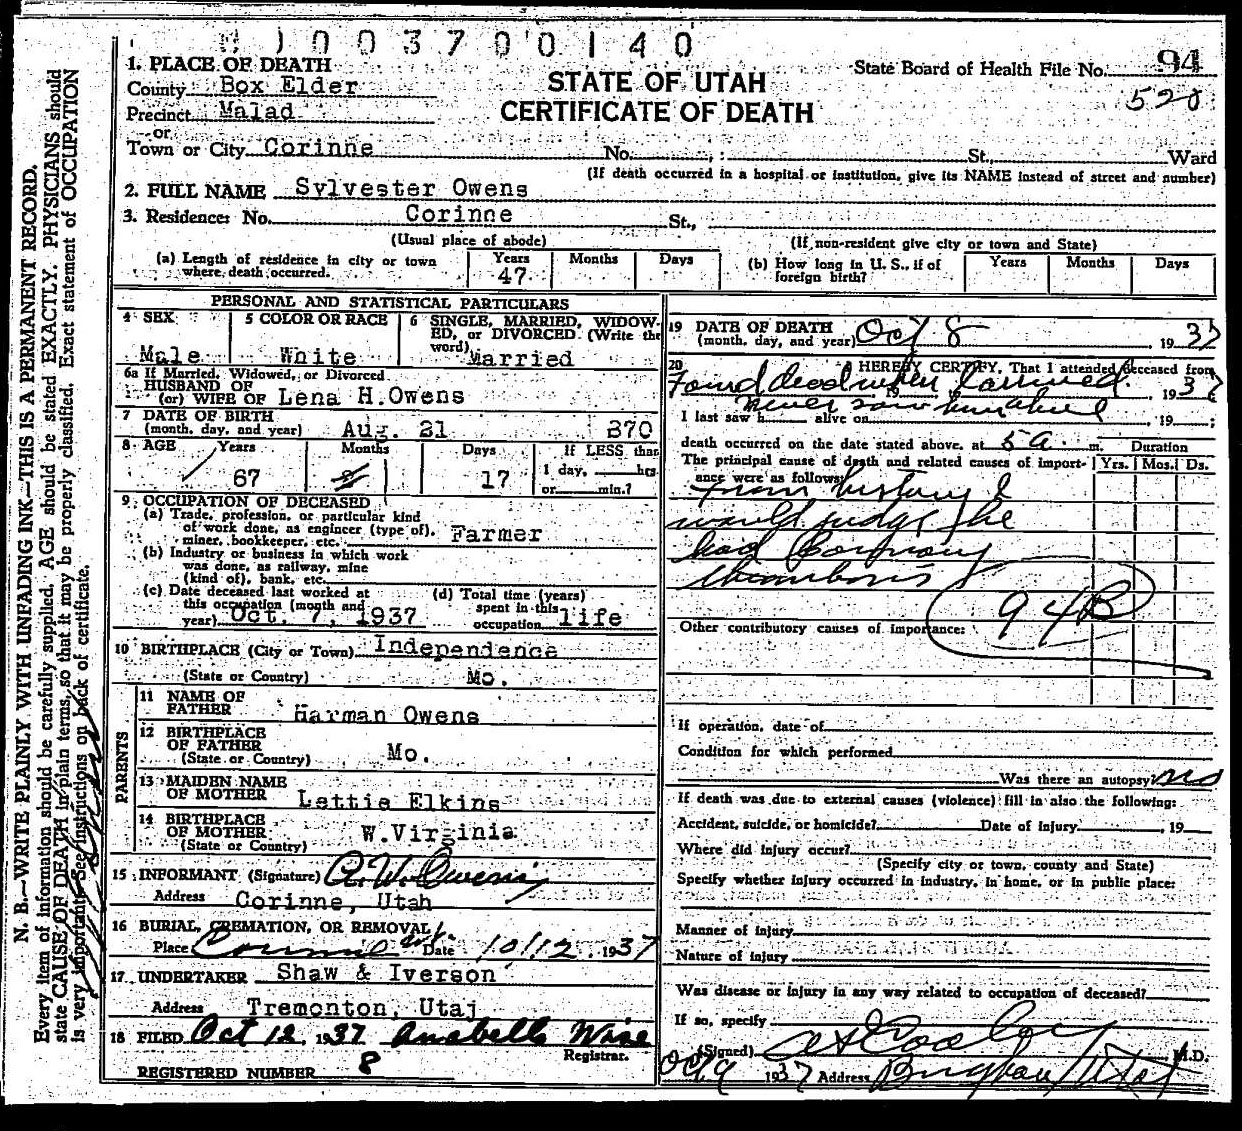 M J 0 0 3 7 0 0 1 4 0
State Board of Health File No. 94
STATE OF UTAH
CERTIFICATE OF DEATH
520
1. PLACE OF DEATH
County Box Elder
Precinct Malad
or
Town or City Corinne No. St., Ward
(If death occurred in a hospital or institution, give its NAME instead of street and number)
2. FULL NAME Sylvester Owens
3. Residence: No. Corinne St.,
(Usual place of abode) (If non-resident give city or town and State)
(a) Length of residence in city or town where death occurred. Years 47 Months Days
(b) How long in U. S., if of foreign birth? Years Months Days
PERSONAL AND STATISTICAL PARTICULARS
4 SEX Male
5 COLOR OR RACE White
6 SINGLE, MARRIED, WIDOWED, or DIVORCED (Write the word) Married
6a If Married, Widowed, or Divorced
HUSBAND OF
(or) WIFE OF Lena H.Owens
7 DATE OF BIRTH
(month, day, and year) Aug. 21 870
8 AGE Years 67 Months Days 17
If LESS than
1 day, hrs.
or min.?
9 OCCUPATION OF DECEASED
(a) Trade, profession, or particular kind
of work done, as engineer (type of),
miner, bookkeeper, etc. Farmer
(b) Industry or business in which work
was done, as railway, mine
(kind of), bank, etc.
(c) Date deceased last worked at
this occupation (month and
year) Oct. 7, 1937
(d) Total time (years)
spent in this
occupation life
10 BIRTHPLACE (City or Town) Independence
(State or Country) Mo.
PARENTS
11 NAME OF
FATHER Harman Owens
12 BIRTHPLACE
OF FATHER
(State or Country) Mo.
13 MAIDEN NAME
OF MOTHER Lettie Elkins
14 BIRTHPLACE
OF MOTHER
(State or Country) W.Virginia
15 INFORMANT (Signature) A.W.Owens
Address Corinne, Utah
16 BURIAL, CREMATION, OR REMOVAL
Place Corinne Ut. Date 10/12, 1937
17 UNDERTAKER Shaw & Iverson
Address Tremonton, Utaj
18 FILED Oct 12, 1937 Anabelle Wise
Registrar.
REGISTERED NUMBER 8
19 DATE OF DEATH
(month, day, and year) Oct 8, 1937
20 I HEREBY CERTIFY, That I attended deceased from
Found dead when I arrived. 19 , 1937
never saw him alive
I last saw h alive on , 19 ;
death occurred on the date stated above, at 5 a. m. Duration
The principal cause of death and related causes of importance were as follows: Yrs. Mos. Ds.
from history I
would judge he
had Coronary
thrombosis
94B
Other contributory causes of importance:
If operation, date of
Condition for which performed
Was there an autopsy? no
If death was due to external causes (violence) fill in also the following:
Accident, suicide, or homicide? Date of injury , 19
Where did injury occur?
(Specify city or town, county and State)
Specify whether injury occurred in industry, in home, or in public place:
Manner of injury
Nature of injury
Was disease or injury in any way related to occupation of deceased?
If so, specify
(Signed) M.D.
Oct 9 1937 Address Brigham, Utah
N. B.—WRITE PLAINLY WITH UNFADING INK—THIS IS A PERMANENT RECORD.
Every item of information should be carefully supplied. AGE should be stated EXACTLY. PHYSICIANS should
state CAUSE OF DEATH in plain terms, so that it may be properly classified. Exact statement of OCCUPATION
is very important. See instructions on back of certificate.